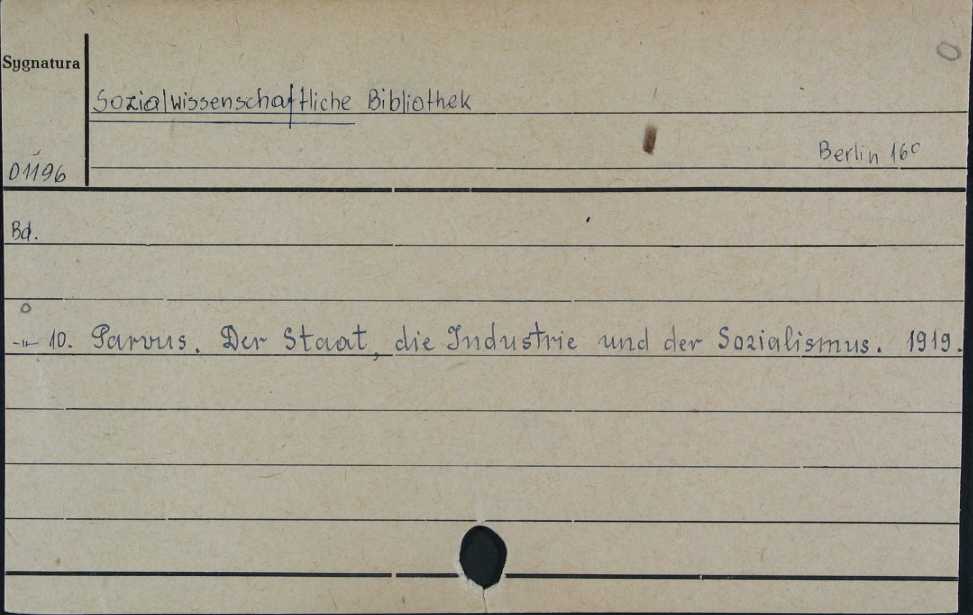 Sygnatura
Sozialwissenschaftliche Bibliothek
Berlin 16°
01196
Bd.
-"- 10. Parvus. Der Staat, die Industrie und der Sozialismus. 1919.